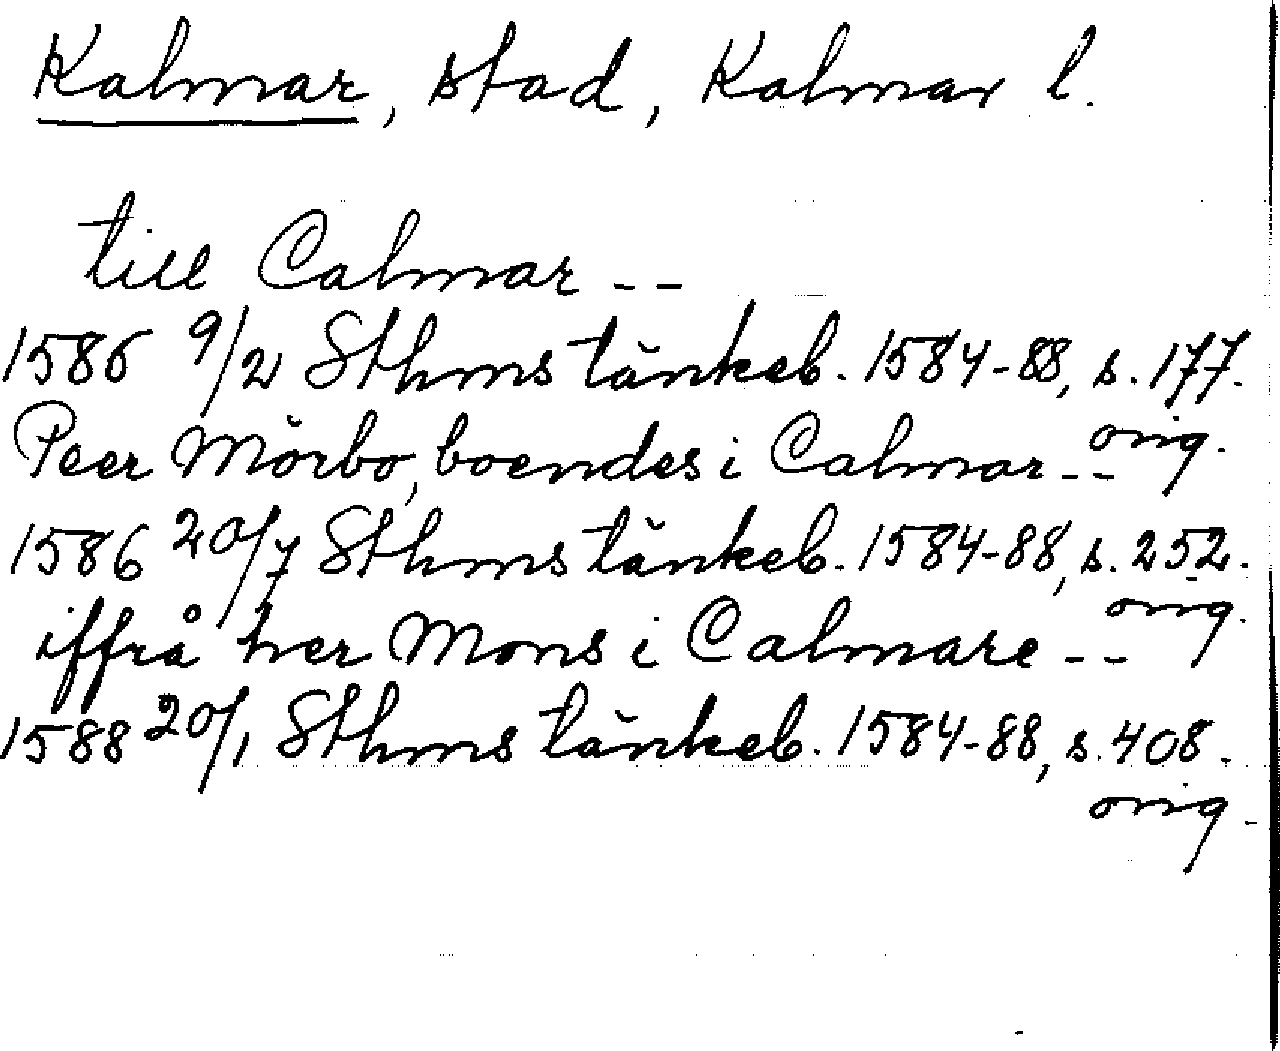 Kalmar, stad, Kalmar l.
till Calmar --
1586 9/2 Sthms tänkeb. 1584-88, s. 177.
orig.
Peer Mörbo, boendes i Calmar --
1586 20/7 Sthms tänkeb. 1584-88, s. 252.
orig.
iffrå her Mons i Calmare --
1588 20/1 Sthms tänkeb. 1584-88, s. 408.
orig.